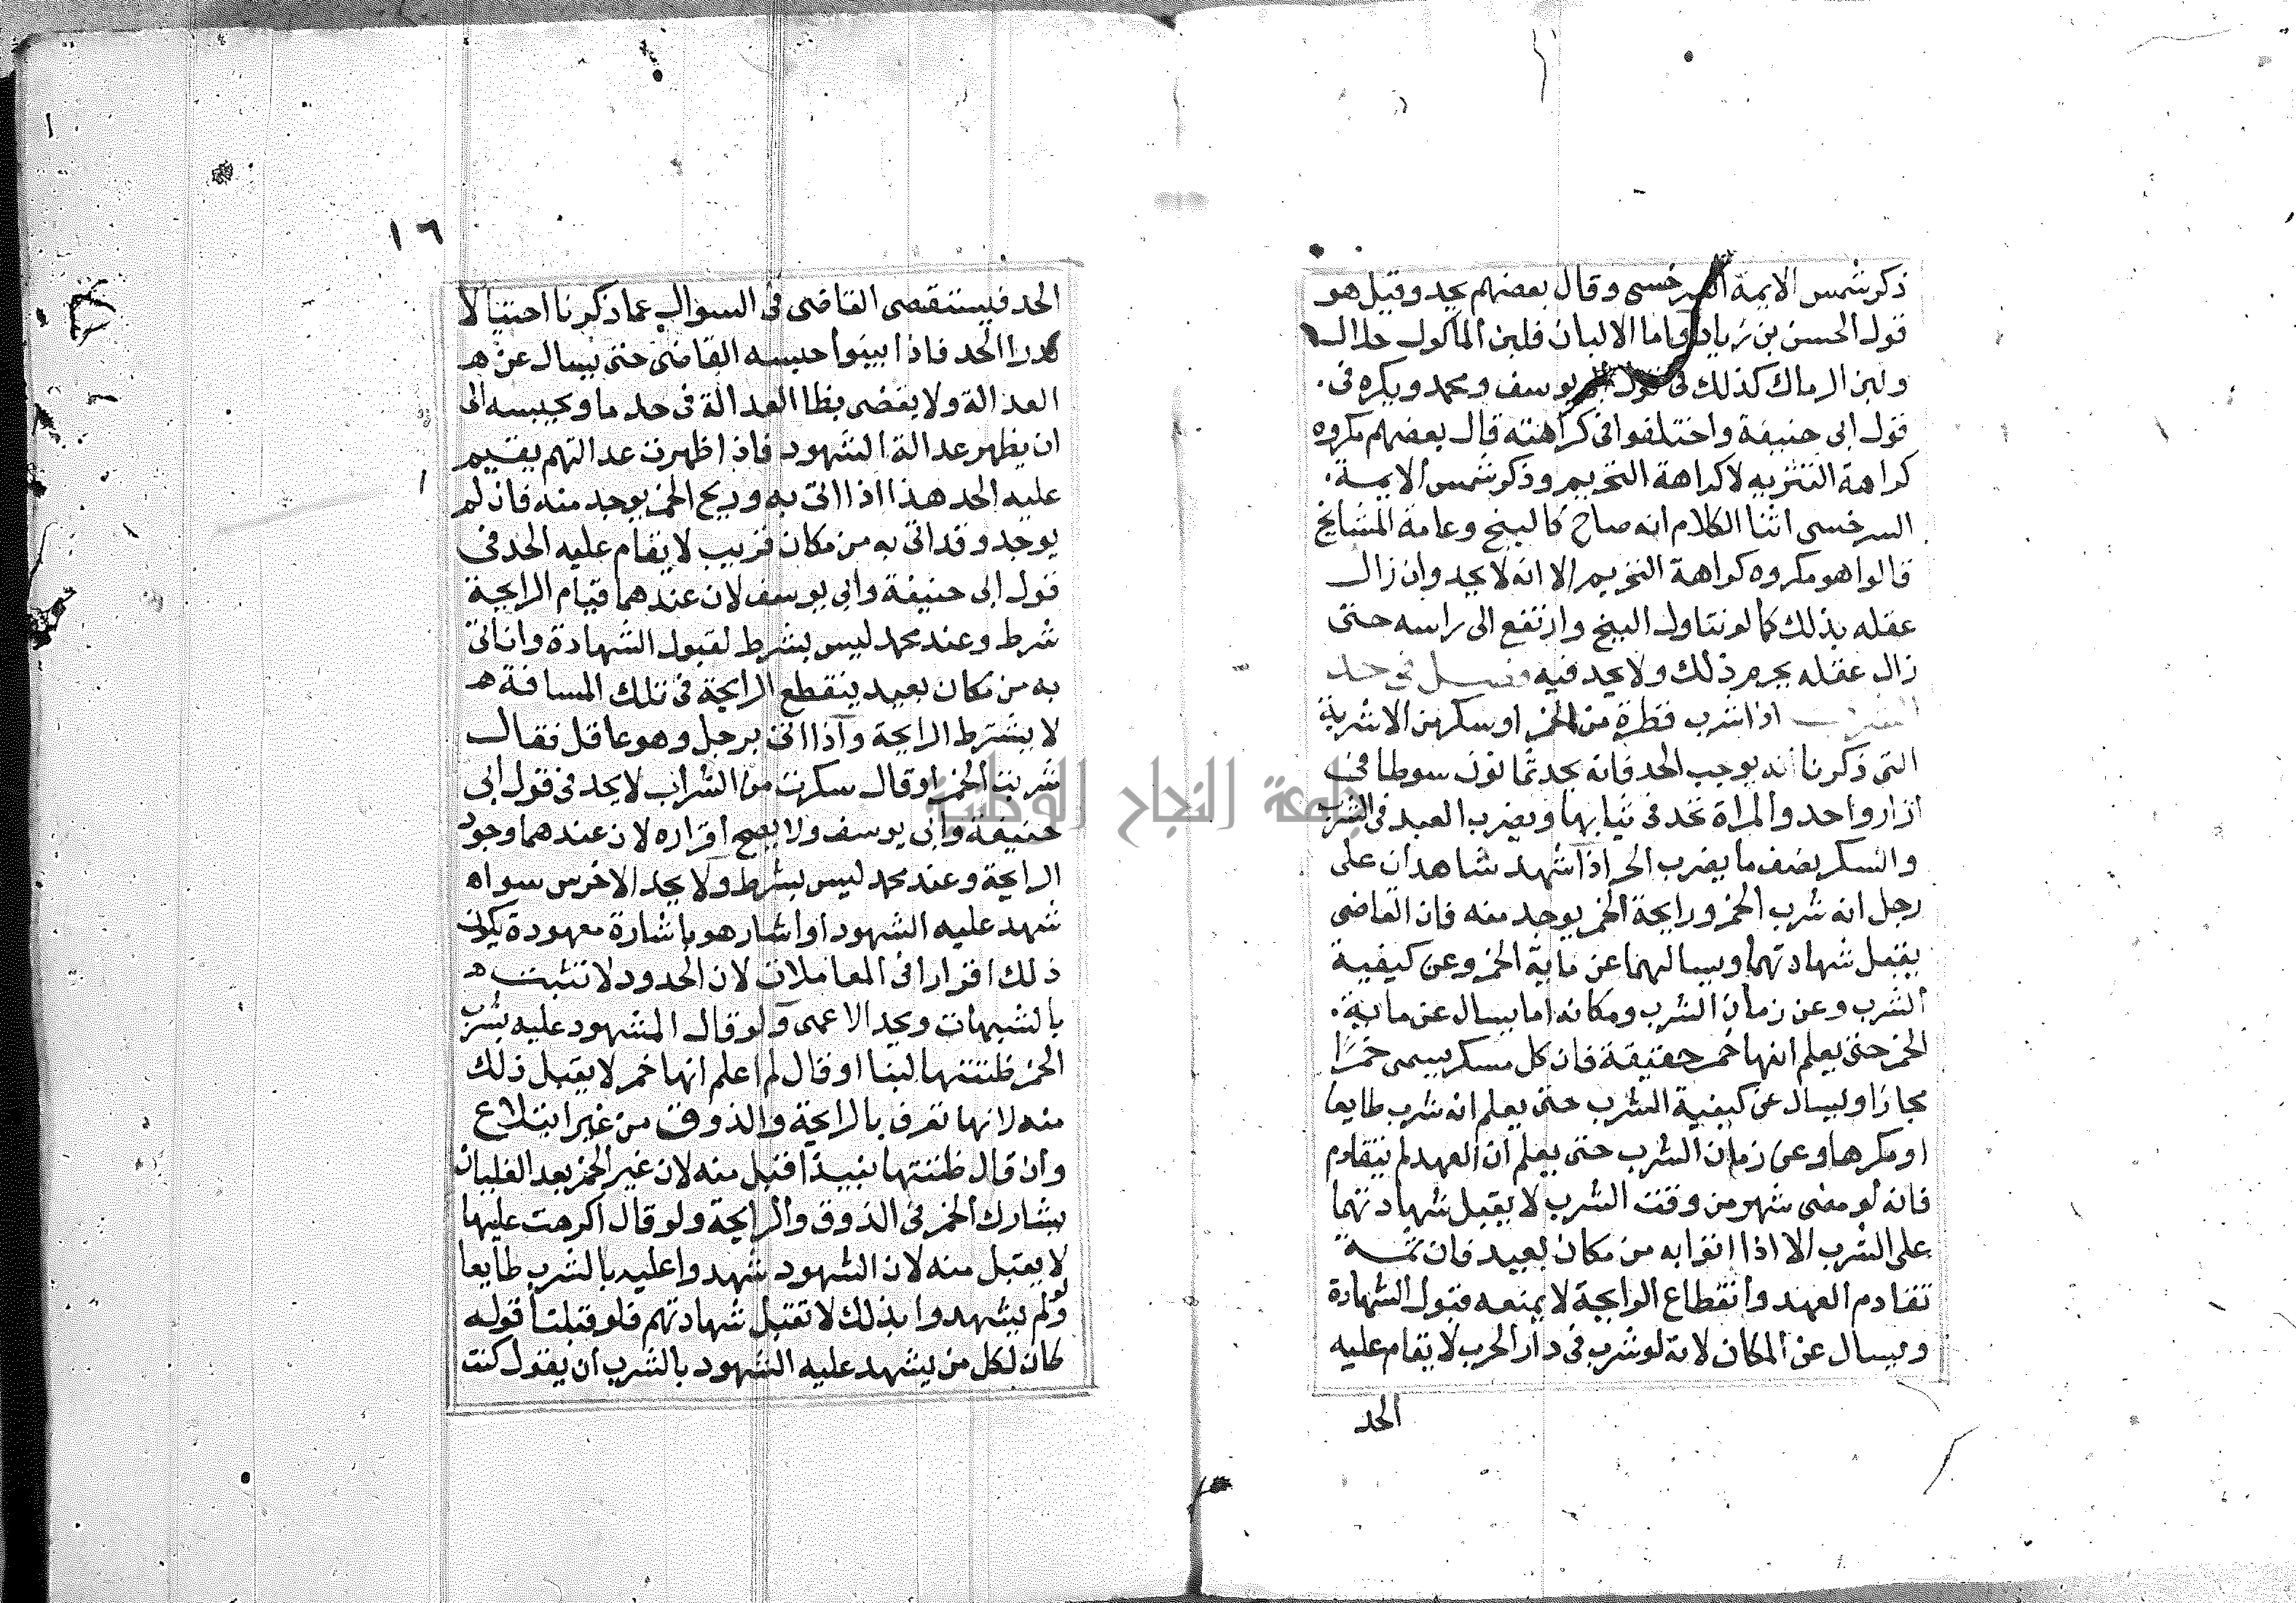 ذكر شمس الايمة السرخسى وقال بعضهم يحد وقيل هو
قول الحسن بن زياد واما الالبان فلبن الماكول حلال
ولبن الرماك كذلك فى قول يوسف ومحمد ويكره فى
قول ابى حنيفة واختلفوا فى كراهته قال بعضهم مكروه
كراهة التنزيه لا كراهة التحريم وذكر شمس الايمة
السرخسى اثنا الكلام انه صاح كالبنج وعامة المشايخ
قالوا هو مكروه كراهة التحريم الا انه لا يحد وان زال
عقله بذلك كما لو تناول البنج وارتفع الى راسه حتى
زال عقله يحرم ذلك ولا يحد فيه فصل فى حد
الشرب اذا شرب قطرة من الخمر او سكر من الاشربة
التى ذكرنا انه يوجب الحد فانه يحد ثمانون سوطا فى
ازار واحد والمراة تحد فى ثيابها ويضرب العبد فى الشرب
والسكر نصف ما يضرب الحر اذا شهد شاهدان على
رجل انه شرب الخمر ورايحة الخمر يوجد منه فان القاضى
يقبل شهادتهما ويسالهما عن ماية الخمر وعن كيفية
الشرب وعن زمان الشرب ومكانه اما يسال عن ماية
الخمر حتى يعلم انها خمر حقيقة فان كل مسكر يسمى خمرا
مجازا وليسال عن كيفية الشرب حتى يعلم انه شرب طايعا
او مكرها وعن زمان الشرب حتى يعلم ان العهد لم يتقادم
فانه لو مضى شهر من وقت الشرب لا يقبل شهادتهما
على الشرب الا اذا اتوا به من مكان بعيد فان ثمة
تقادم العهد وانقطاع الرايحة لا يمنعه قبول الشهادة
ويسال عن المكان لانه لو شرب فى دار الحرب لا يقام عليه
الحد
١٦
الحد فيستقصى القاضى فى السوال عما ذكرنا احتيالا
لدرا الحد فاذا بينوا حبسه القاضى حتى يسال عن
العدالة ولا يقضى بظا العدالة فى حد ما ويحبسه الى
ان يظهر عدالة الشهود فاذا ظهرت عدالتهم يقيم
عليه الحد هذا اذا اتى به وريح الخمر يوجد منه فان لم
يوجد وقد اتى به من مكان قريب لا يقام عليه الحد فى
قول ابى حنيفة وابى يوسف لان عندهما قيام الرايحة
شرط وعند محمد ليس بشرط لقبول الشهادة وان اتى
به من مكان بعيد ينقطع الرايحة فى تلك المسافة
لا يشترط الرايحة واذا اتى برجل وهو عاقل فقال
شربت الخمر او قال سكرت من الشراب لا يحد فى قول ابى
حنيفة وابى يوسف ولا يصح اقراره لان عندهما وجود
الرايحة وعند محمد ليس بشرط ولا يحد الاخرس سواه
شهد عليه الشهود او اشار هو باشارة معهودة يكون
ذلك اقرارا فى المعاملات لان الحدود لا تثبت
بالشبهات ويحد الاعمى ولو قال المشهود عليه بشرب
الخمر ظننتها لبنا او قال لم اعلم انها خمر لا يقبل ذلك
منه لانها تعرف بالرايحة والذوق من غير ابتلاع
وان قال ظننتها نبيذا قبل منه لان غير الخمر بعد الغليان
يشارك الخمر فى الذوق والرايحة ولو قال اكرهت عليها
لا يقبل منه لان الشهود شهدوا عليه بالشرب طايعا
ولو لم يشهدوا بذلك لا تقبل شهادتهم فلو قبلنا قوله
كان لكل من يشهد عليه الشهود بالشرب ان يقول كنت
جامعة النجاح الوطنية